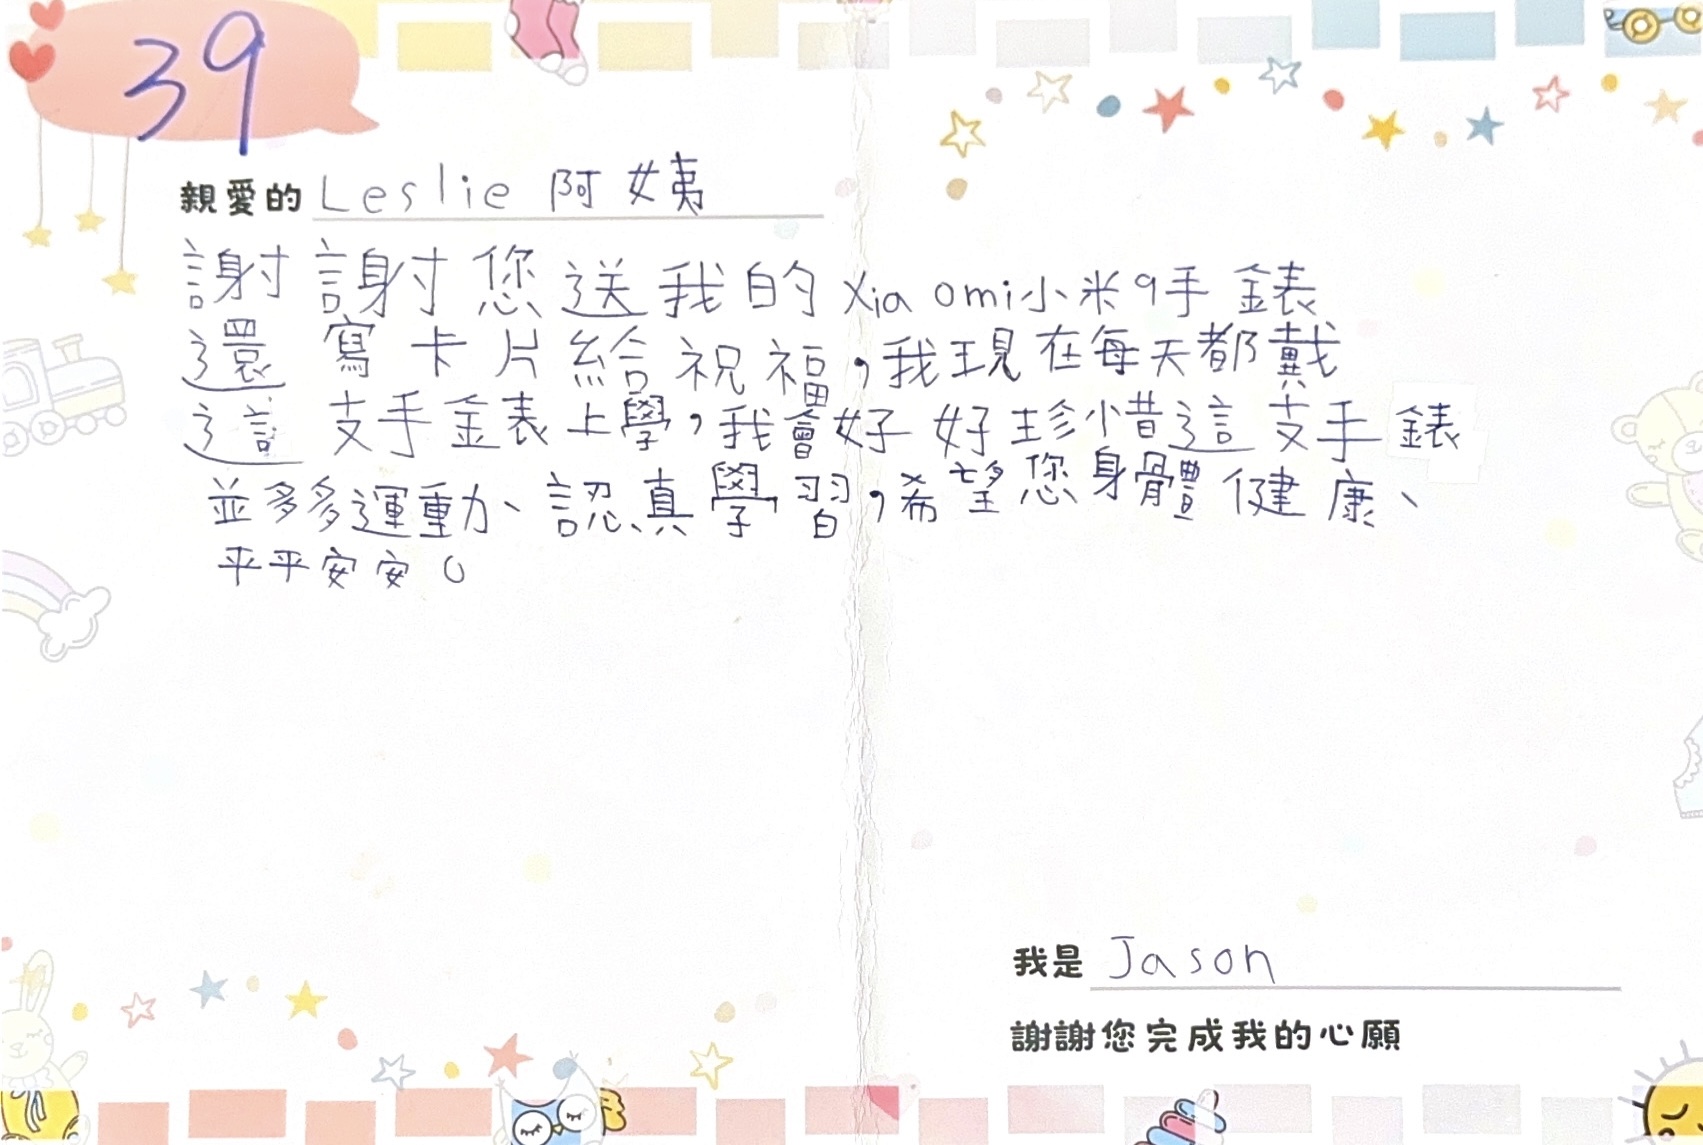 39
親愛的 Leslie 阿姨
謝謝您送我的Xiaomi小米9手錶
還寫卡片給祝福，我現在每天都戴
這支手錶上學，我會好好珍惜這支手錶
並多多運動、認真學習，希望您身體健康、
平平安安。
我是 Jason
謝謝您完成我的心願